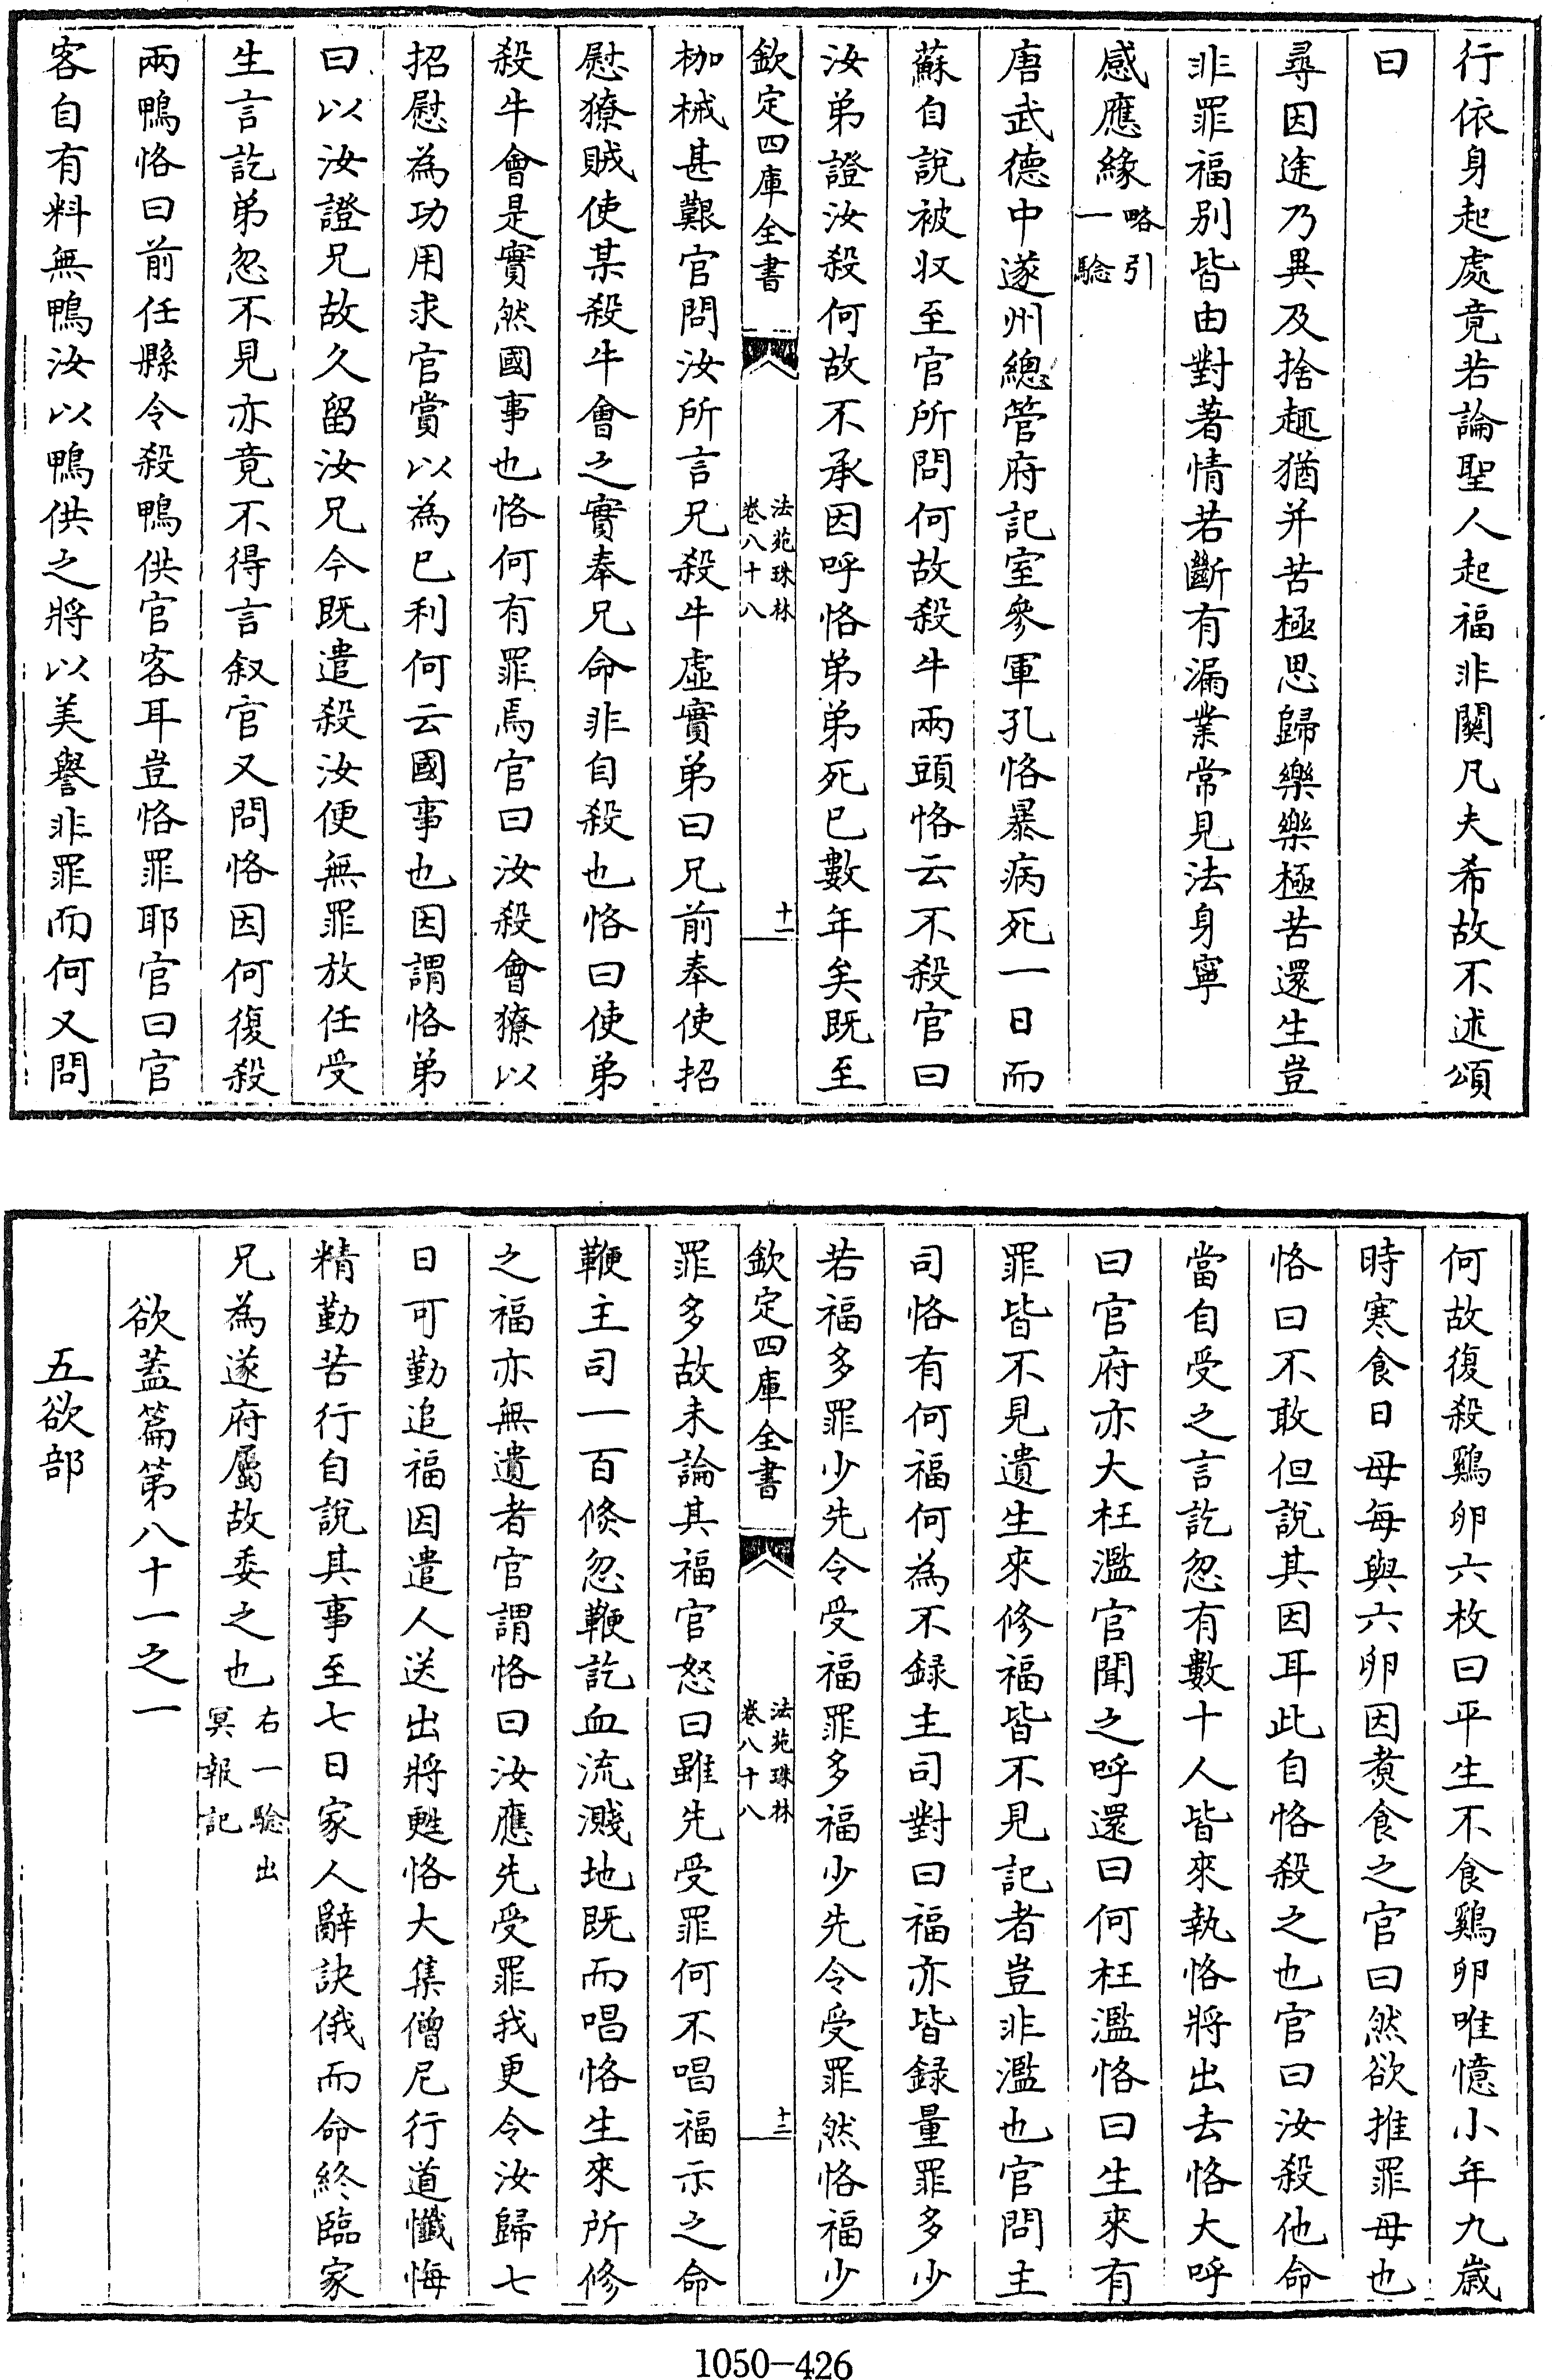 行依身起處竟若論聖人起福非關凡夫希故不述頌
曰
尋因途乃異及捨趣猶并苦極思歸樂樂極苦還生豈
非罪福别皆由對著情若斷有漏業常見法身寧
感應緣略引一驗
唐武德中遂州總管府記室參軍孔恪暴病死一日而
蘇自說被収至官所問何故殺牛兩頭恪云不殺官曰
汝弟證汝殺何故不承因呼恪弟弟死已數年矣既至
欽定四庫全書
法苑珠林
卷八十八
十二
枷械甚艱官問汝所言兄殺牛虛實弟曰兄前奉使招
慰獠賊使某殺牛會之實奉兄命非自殺也恪曰使弟
殺牛會是實然國事也恪何有罪焉官曰汝殺會獠以
招慰為功用求官賞以為已利何云國事也因謂恪弟
曰以汝證兄故久留汝兄今既遣殺汝便無罪放任受
生言訖弟忽不見亦竟不得言叙官又問恪因何復殺
兩鴨恪曰前任縣令殺鴨供官客耳豈恪罪耶官曰官
客自有料無鴨汝以鴨供之將以美譽非罪而何又問
何故復殺鷄卵六枚曰平生不食鷄卵唯憶小年九歲
時寒食日母每與六卵因煑食之官曰然欲推罪母也
恪曰不敢但說其因耳此自恪殺之也官曰汝殺他命
當自受之言訖忽有數十人皆來執恪將出去恪大呼
曰官府亦大枉濫官聞之呼還曰何枉濫恪曰生來有
罪皆不見遺生來修福皆不見記者豈非濫也官問主
司恪有何福何為不録主司對曰福亦皆録量罪多少
若福多罪少先令受福罪多福少先令受罪然恪福少
欽定四庫全書
法苑珠林
卷八十八
十三
罪多故未論其福官怒曰雖先受罪何不唱福示之命
鞭主司一百倏忽鞭訖血流濺地既而唱恪生來所修
之福亦無遺者官謂恪曰汝應先受罪我更令汝歸七
日可勤追福因遣人送出將甦恪大集僧尼行道懺悔
精勤苦行自說其事至七日家人辭訣俄而命終臨家
兄為遂府屬故委之也右一驗出冥報記
欲蓋篇第八十一之一
五欲部
1050-426